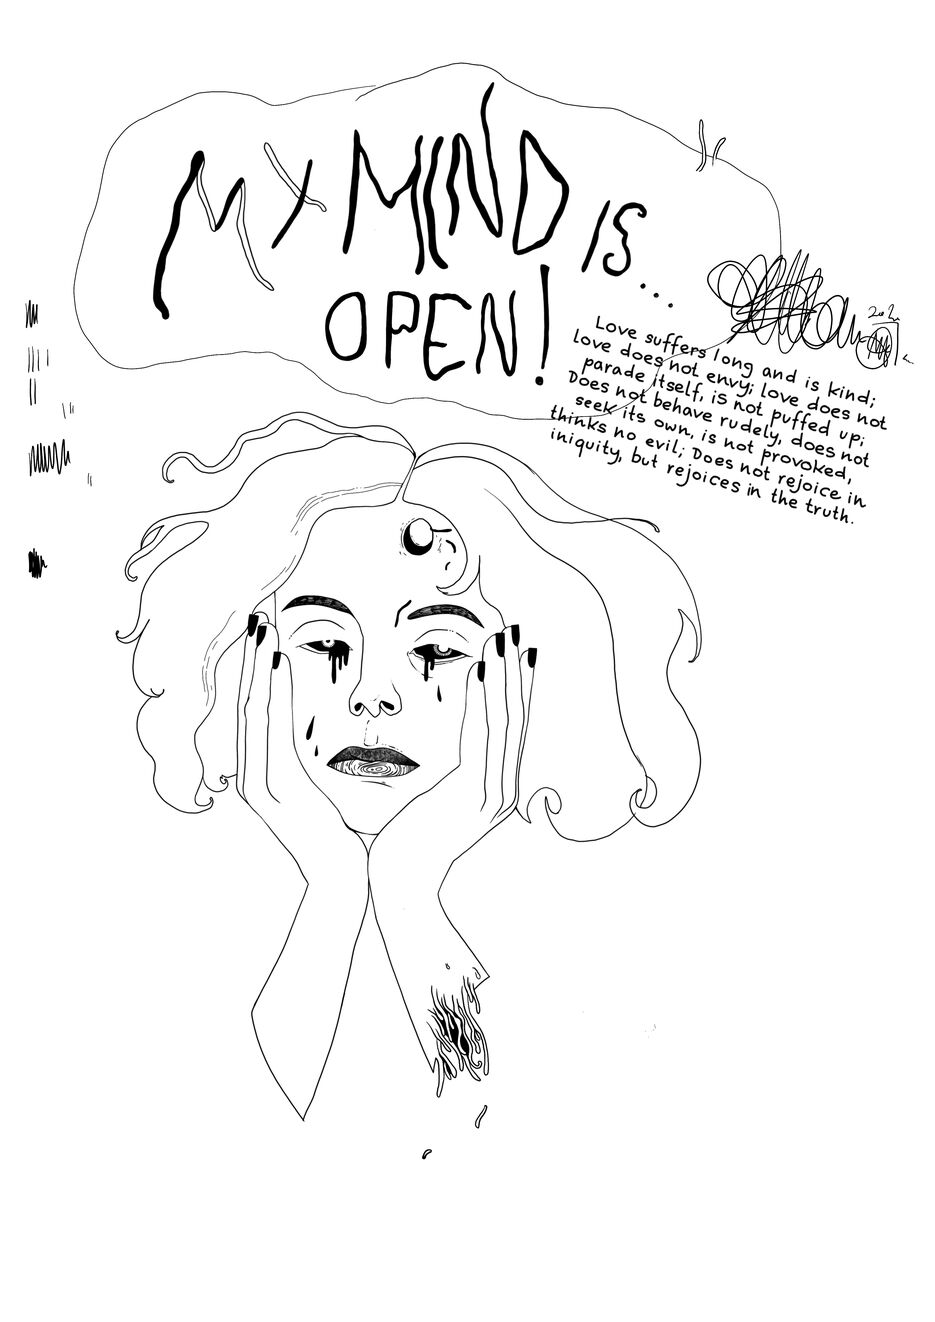 MY MIND IS...
OPEN!
Love suffers long and is kind;
love does not envy; love does not
parade itself, is not puffed up;
Does not behave rudely, does not
seek its own, is not provoked,
thinks no evil; Does not rejoice in
iniquity, but rejoices in the truth.